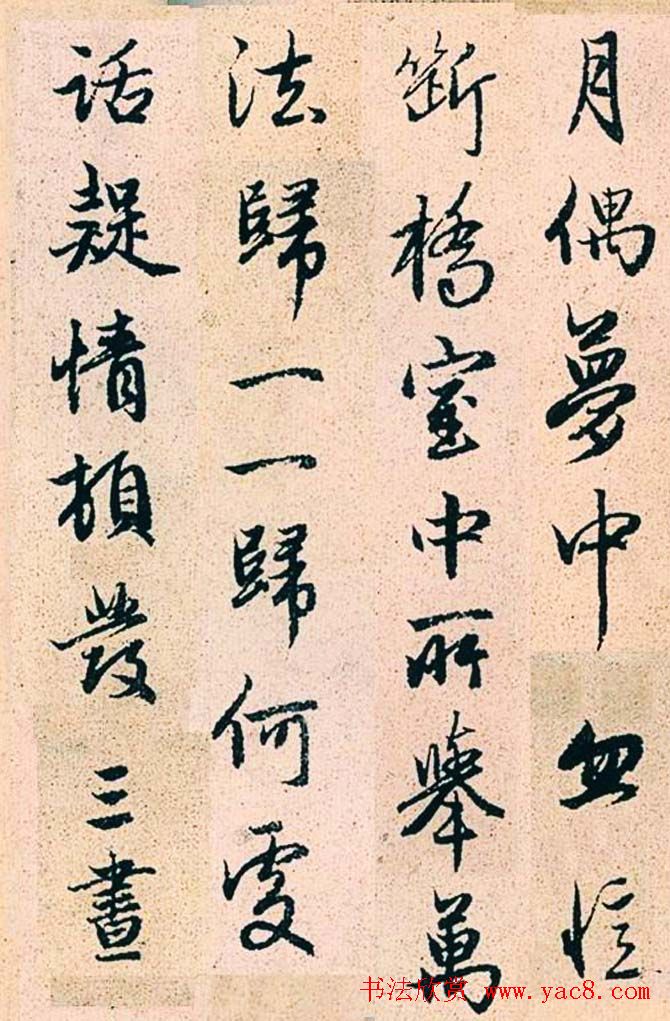 月偶夢中忽憶
斷橋室中所舉萬
法歸一一歸何處
話疑情頓發三晝
书法欣赏 www.yac8.com